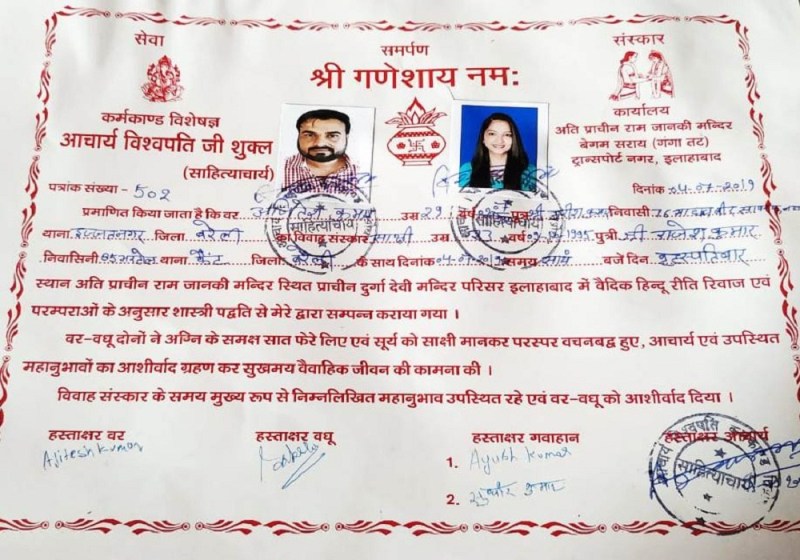 सेवा
समर्पण
संस्कार
श्री गणेशाय नम:
कर्मकाण्ड विशेषज्ञ
आचार्य विश्वपति जी शुक्ल
(साहित्याचार्य)
कार्यालय
अति प्राचीन राम जानकी मन्दिर
बेगम सराय (गंगा तट)
ट्रान्सपोर्ट नगर, इलाहाबाद
पत्रांक संख्या - 502
दिनांक 04-07-2019
प्रमाणित किया जाता है कि वर कुमार उम्र 29 वर्ष पुत्र निवासी
थाना इज्जतनगर जिला बरेली का विवाह संस्कार साक्षी उम्र वर्ष 1995 पुत्री श्री राजेश कुमार
निवासिनी थाना कैंट जिला बरेली के साथ दिनांक 04-07-2019 समय सायं बजे दिन बृहस्पतिवार
स्थान अति प्राचीन राम जानकी मन्दिर स्थित प्राचीन दुर्गा देवी मन्दिर परिसर इलाहाबाद में वैदिक हिन्दू रीति रिवाज एवं
परम्पराओं के अनुसार शास्त्री पद्वति से मेरे द्वारा सम्पन्न कराया गया ।
वर-वधू दोनों ने अग्नि के समक्ष सात फेरे लिए एवं सूर्य को साक्षी मानकर परस्पर वचनबद्व हुए, आचार्य एवं उपस्थित
महानुभावों का आशीर्वाद ग्रहण कर सुखमय वैवाहिक जीवन की कामना की ।
विवाह संस्कार के समय मुख्य रूप से निम्नलिखित महानुभाव उपस्थित रहे एवं वर-वधू को आशीर्वाद दिया ।
हस्ताक्षर वर
हस्ताक्षर वधू
हस्ताक्षर गवाहान
हस्ताक्षर आचार्य
Ajitesh kumar
1. Ayush kumar
2. कुमार
साहित्याचार्य
साहित्याचार्य
साहित्याचार्य